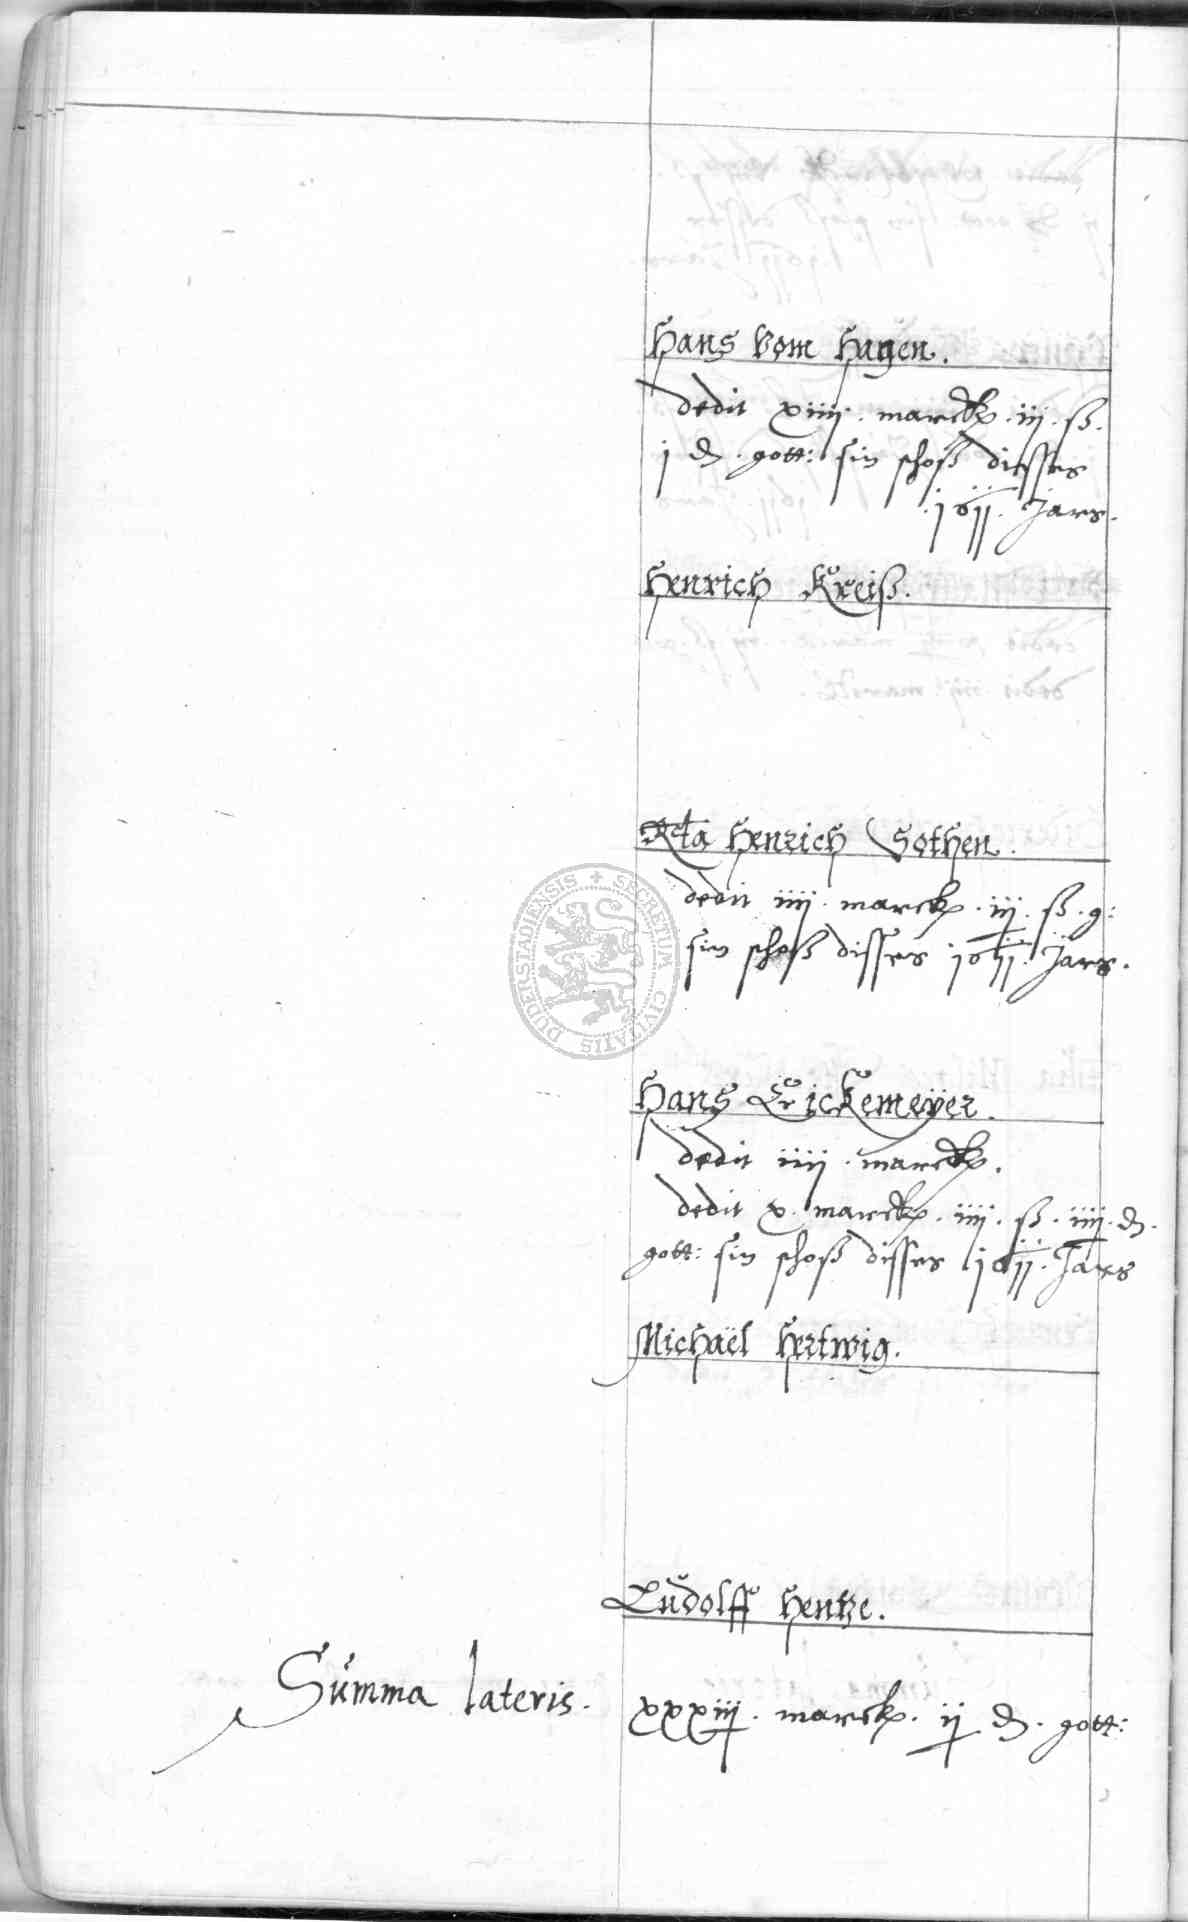 Hans Vom Hagen.
dedit xiiii. marck. iij. ß.
j ₰. gott: sin schoß disses
.1611. Jars.
Henrich Kreiß.
Rcta Henrich Sothen.
dedit iiij. marck. iij. ß. g:
sin schoß disses 1611. Jars.
Hans Erickemeÿer.
dedit iiij. marck.
dedit x. marck. iiij. ß. iiij. ₰.
gott: sin schoß disses 1611. Jars
Michaël Hertwig.
Ludolff Hentze.
Summa lateris. xxxiij. marck. ij ₰. gott:
SECRETUM CIVITATIS DUDERSTADIENSIS